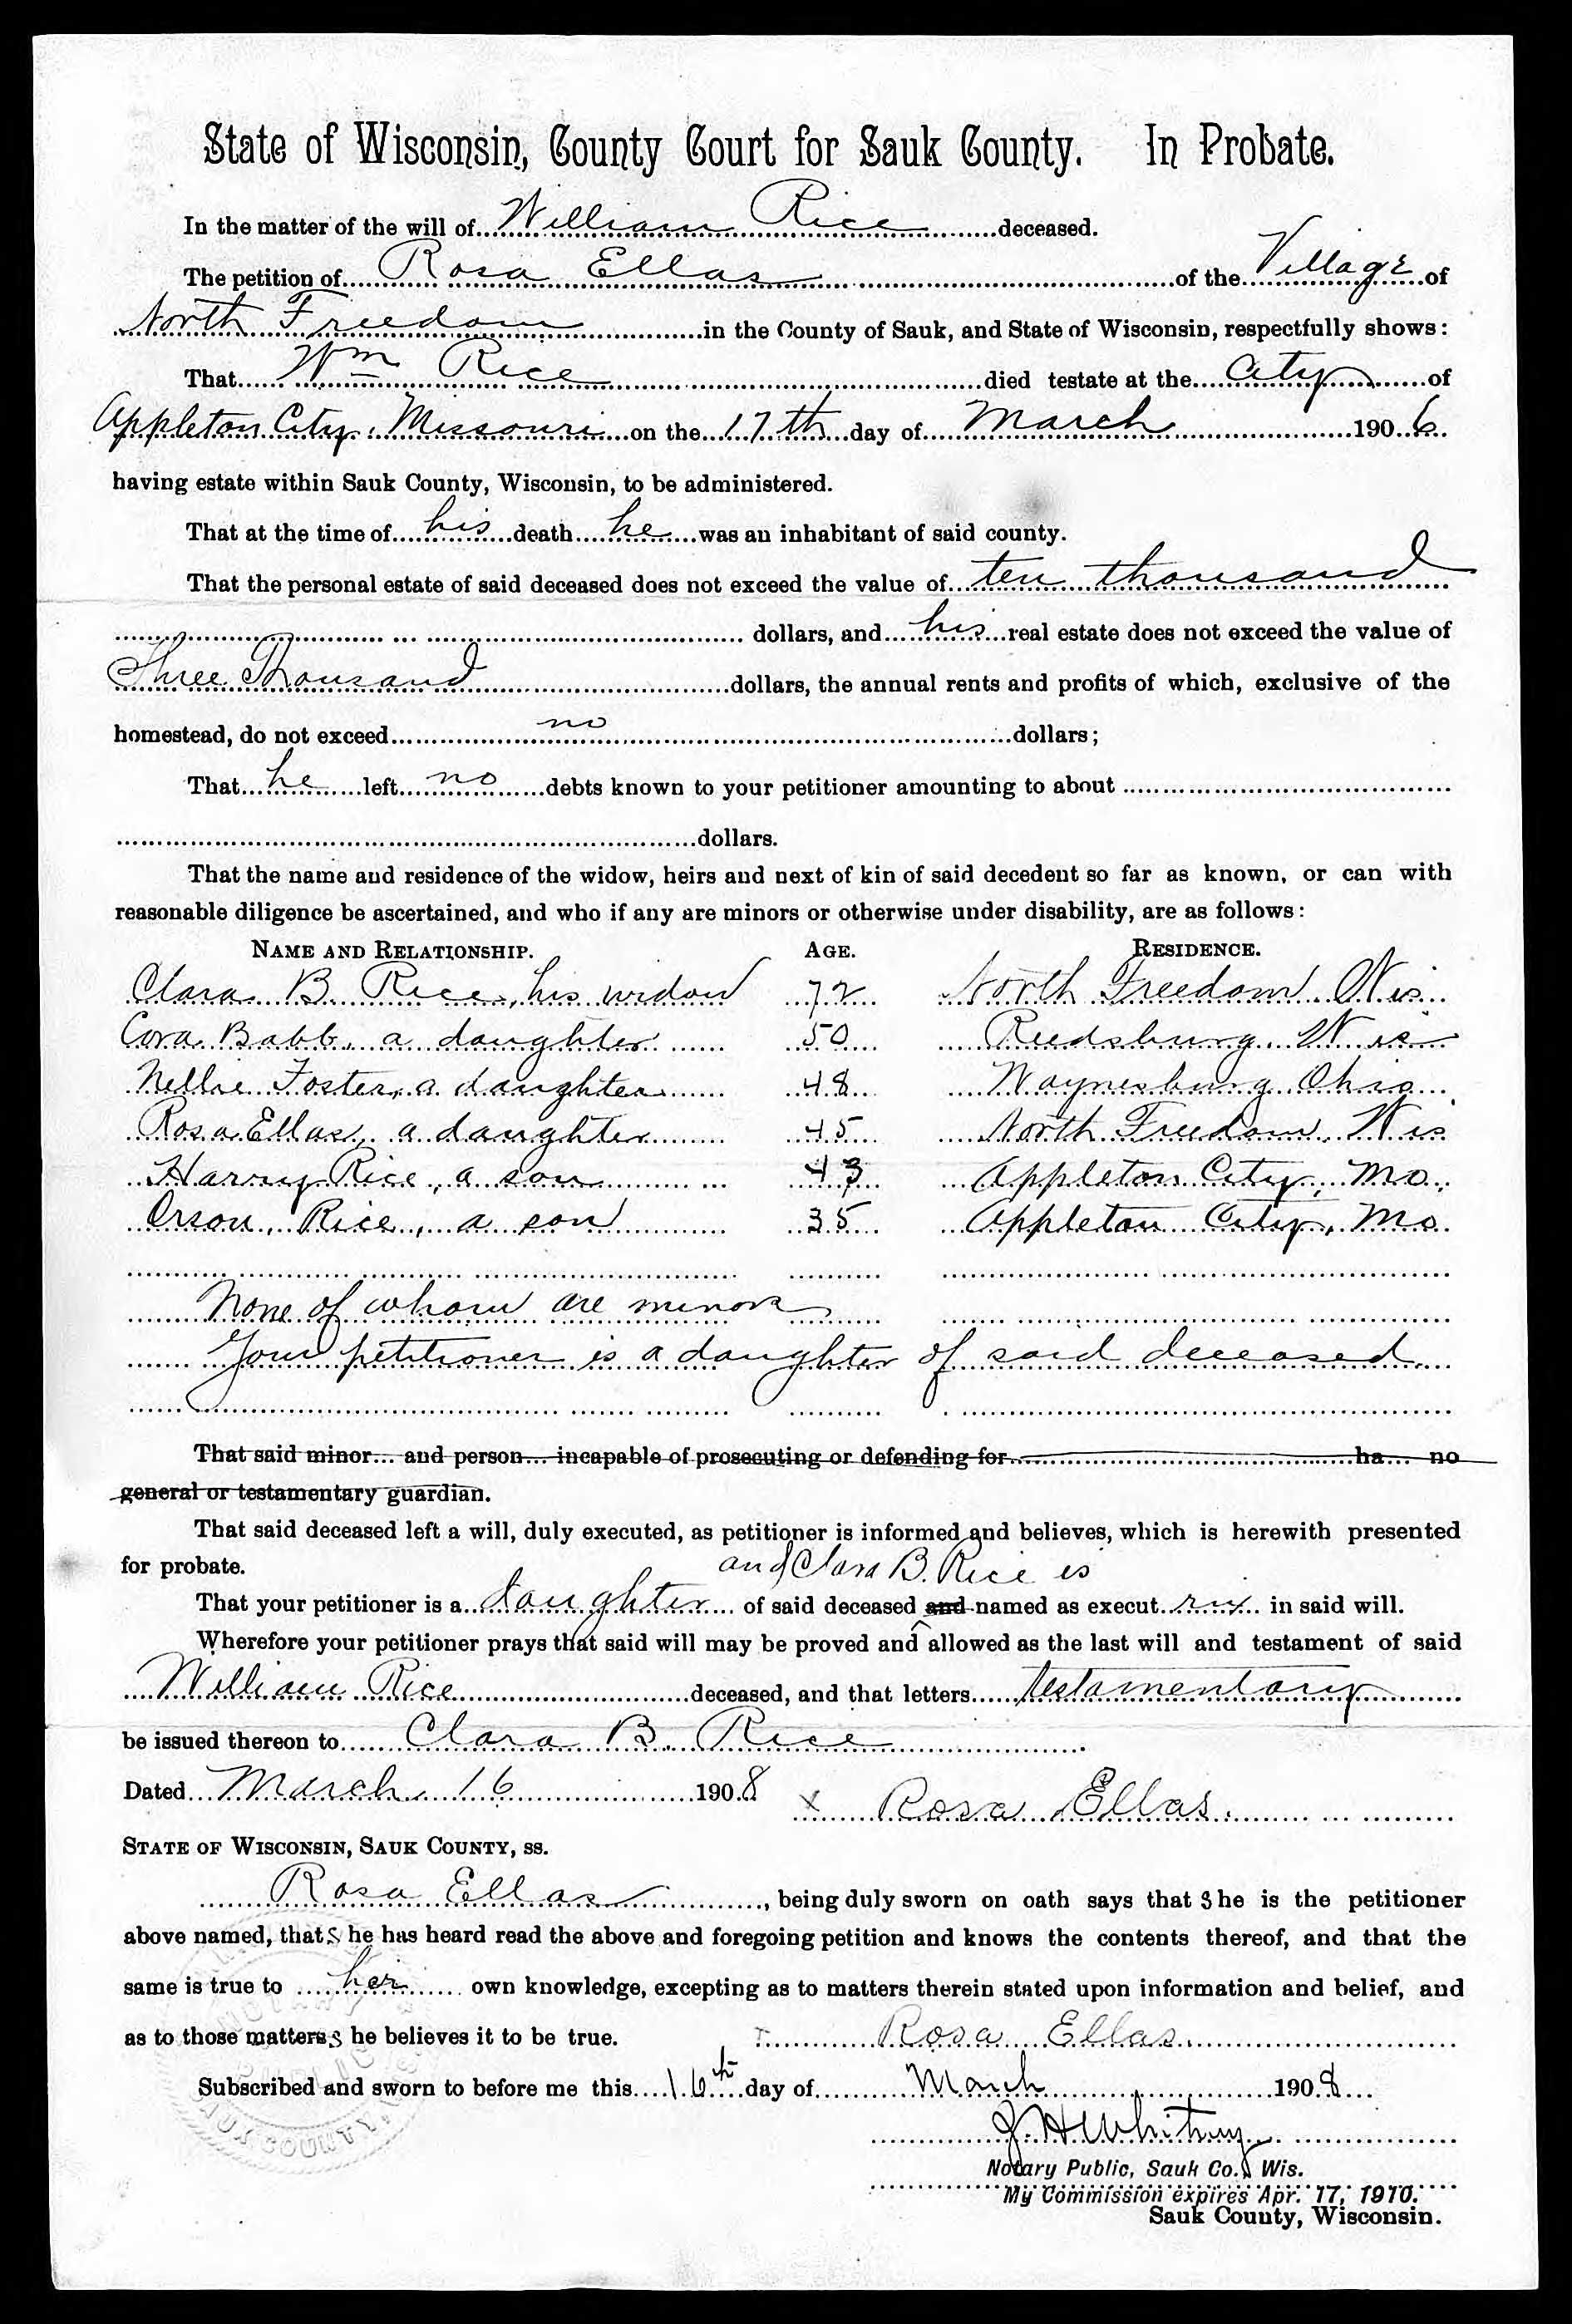 State of Wisconsin, County Court for Sauk County. In Probate.
In the matter of the will of William Rice deceased.
The petition of Rosa Ellas of the Village of
North Freedom in the County of Sauk, and State of Wisconsin, respectfully shows:
That Wm Rice died testate at the City of
Appleton City, Missouri on the 17th day of March 1906
having estate within Sauk County, Wisconsin, to be administered.
That at the time of his death he was an inhabitant of said county.
That the personal estate of said deceased does not exceed the value of ten thousand
dollars, and his real estate does not exceed the value of
Three Thousand dollars, the annual rents and profits of which, exclusive of the
homestead, do not exceed no dollars;
That he left no debts known to your petitioner amounting to about
dollars.
That the name and residence of the widow, heirs and next of kin of said decedent so far as known, or can with
reasonable diligence be ascertained, and who if any are minors or otherwise under disability, are as follows:
NAME AND RELATIONSHIP. AGE. RESIDENCE.
Clara B. Rice, his widow 72 North Freedom Wis
Cora Babb, a daughter 50 Reedsburg Wis
Nellie Foster, a daughter 48 Waynesburg Ohio
Rosa Ellas, a daughter 45 North Freedom, Wis
Harry Rice, a son 43 Appleton City, Mo.
Orson, Rice, a son 35 Appleton City, Mo
None of whom are minors
Your petitioner is a daughter of said deceased
That said minor and person incapable of prosecuting or defending for ha no
general or testamentary guardian.
That said deceased left a will, duly executed, as petitioner is informed and believes, which is herewith presented
for probate.
and Clara B. Rice is
That your petitioner is a daughter of said deceased and named as execut rix in said will.
Wherefore your petitioner prays that said will may be proved and allowed as the last will and testament of said
William Rice deceased, and that letters testamentary
be issued thereon to Clara B. Rice
Dated March 16 1908 x Rosa Ellas.
STATE OF WISCONSIN, SAUK COUNTY, SS.
Rosa Ellas, being duly sworn on oath says that She is the petitioner
above named, that S he has heard read the above and foregoing petition and knows the contents thereof, and that the
same is true to her own knowledge, excepting as to matters therein stated upon information and belief, and
as to those matters S he believes it to be true. Rosa Ellas
Subscribed and sworn to before me this 16th day of March 1908
J. H. Whitney
Notary Public, Sauk Co., Wis.
My Commission expires Apr. 17, 1910.
Sauk County, Wisconsin.
NOTARY
PUBLIC
SAUK COUNTY, WIS